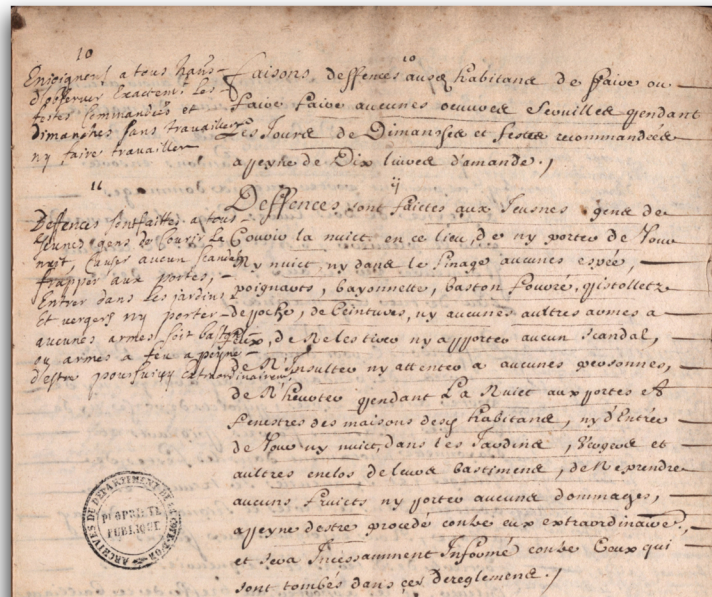 10
Enjoignons a tous hans
d'observer Exactemt les
festes Commandées et
dimanches sans travailler
ny faire travailler
10
Faisons deffences ausd habitans de faire ou
faire faire aucunes œuvres serviilles pendant
Les Jours de Dimanches et festes recommandées
a peyne de Dix livres d'amande.
11
Defences sont faites a tous
Jeunes gens de Courir La
nuit, causer aucun scandal
frapper aux portes,
Entrer dans les jardins
Et vergers ny porter
aucunes armes soit baston
ou armes à feu a peyne
d'estre poursuivy extraordinairemt
ij
Deffences sont faictes aux Jeusnes gens de
Courir la nuict en ce lieu, de ny porter de Jour
ny nuict, ny dans le finage aucunes espée,
poignarts, bayonnette, baston fouré, pistolletz
de poche, de Ceintures, ny aucunes aultres armes a
feux, de ny aporter aucun scandal,
de N'Insulter ny attenter a aucunes personnes,
de N'heurter pendant La Nuict aux portes et
fenestres des maisons desd habitans, ny d'Entrer
de Jour ny nuict, dans les Jardins, Vergers et
aultres enclos de leurs bastimens, de N'y prendre
aucuns fruicts ny porter aucuns dommages,
a peyne destre procedé contre eux extraordinairemt,
et sera Incessamment Informé contre Ceux qui
sont tombés dans ces dereglemens.
ARCHIVES DU DEPARTEMENT DE LA COTE-D'OR
PROPRIÉTÉ
PUBLIQUE